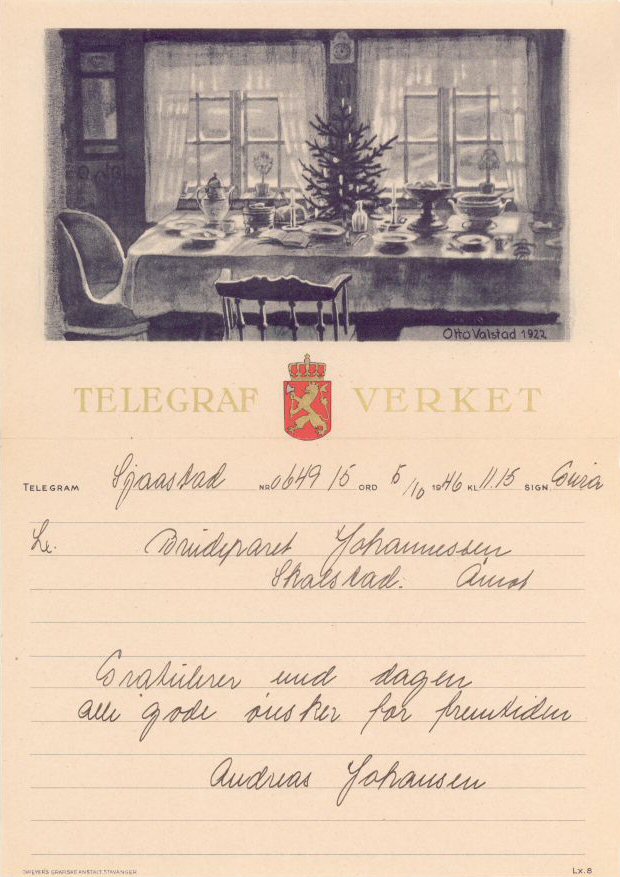 Otto Valstad 1922
TELEGRAF VERKET
TELEGRAM Sjaastad NR 0649 15 ORD 5/10 1946 KL 11.15 SIGN.
Lx. Brudeparet Johannessen
Skalstad. Åmot
Gratulerer med dagen
alle gode ønsker for fremtiden
Andreas Johansen
DREYERS GRAFISKE ANSTALT, STAVANGER Lx. 8